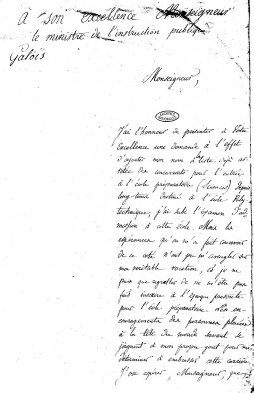 à son excellence Monseigneur
le ministre de l'instruction publique
Galois
Monseigneur,
J'ai l'honneur de présenter à Votre
Excellence une demande à l'effet
d'ajouter mon nom à la liste déjà
des concurrents pour l'entrée
à l'école préparatoire (sciences). Depuis
long-tems destiné à l'école Poly-
technique, j'ai subi l'examen d'ad-
mission à cette école. Mais les
espérances qu'on m'a fait concevoir
de ce coté n'ont pu m'aveugler sur
ma véritable vocation, et je ne
puis que regretter de ne m'être pas
fait inscrire à l'époque prescrite
pour l'école préparatoire. Les en-
couragements des personnes placées
à la tête du monde savant se
joignent à mon propre goût pour me
déterminer à embrasser cette carrière
J'ose espérer, Monseigneur, que